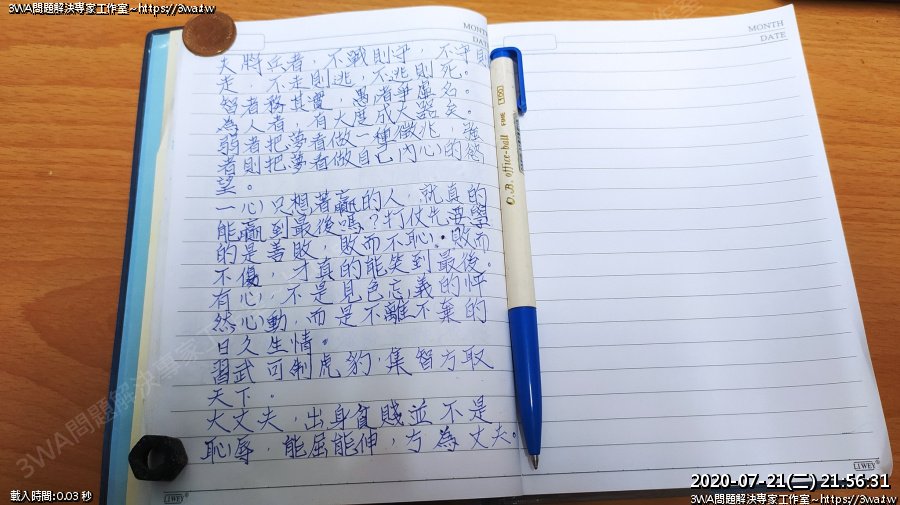 3WA問題解決專家工作室~https://3wa.tw
MONTH
DATE
夫將兵者，不戰則守，不守則
走，不走則逃，不逃則死。
智者務其實，愚者爭虛名。
為人者，有大度成大器矣。
弱者把夢看做一種徵兆，強
者則把夢看做自己內心的慾
望。
一心只想著贏的人，就真的
能贏到最後嗎？打仗先要學
的是善敗，敗而不恥，敗而
不傷，才真的能笑到最後。
有心，不是見色忘義的怦
然心動，而是不離不棄的
日久生情。
習武可制虎豹，集智方取
天下。
大丈夫，出身貧賤並不是
恥辱，能屈能伸，方為丈夫。
LIWEY
MONTH
DATE
O.B. office-ball FINE 100
LIWEY
3WA問題解決專家工作室
載入時間:0.03 秒
2020-07-21(二) 21:56:31
3WA問題解決專家工作室~https://3wa.tw